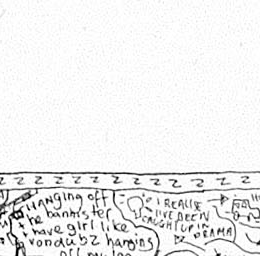 Z Z Z Z Z Z Z Z Z Z Z Z Z
HANGING OFF
the bannister
have girl like
vondubz hanging
off my leg
I REALISE
I'VE BEEN
CAUGHT UP IN
DRAMA